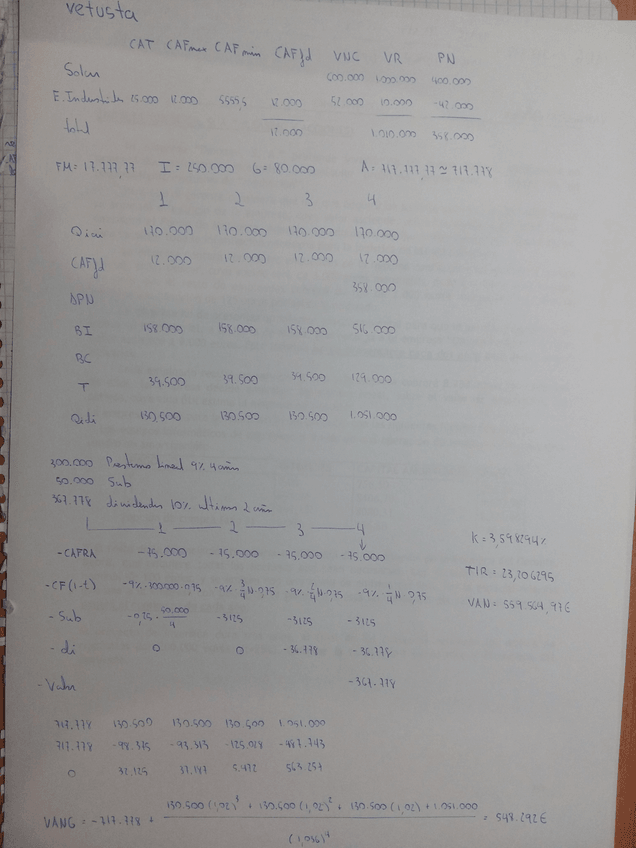 vetusta
CAT CAFmax CAFmin CAFfd VNC VR PN
Solar 600.000 1.000.000 400.000
E. Industrial 25.000 12.000 5555,5 12.000 52.000 10.000 -42.000
total 12.000 1.010.000 358.000
FM= 17.777,77 I= 250.000 G= 80.000 A= 717.777,77 ≃ 717.778
1 2 3 4
170.000 170.000 170.000 170.000
CAFfd 12.000 12.000 12.000 12.000
ΔPN 358.000
BI 158.000 158.000 158.000 516.000
BC
T 39.500 39.500 39.500 129.000
130.500 130.500 130.500 1.051.000
300.000 Prestamo lineal 9% 4 años
50.000 Sub
367.778 dividendos 10% ultimos 2 años
1 2 3 4
-CAFRA -75.000 -75.000 -75.000 -75.000
K= 3,598294%
-CF(1-t) -9%·300.000·0,75 -9%·3/4 N·0,75 -9%·2/4 N·0,75 -9%·1/4 N·0,75
TIR= 23,206295
VAN= 559.564,97€
-Sub -0,25·50.000/4 -3125 -3125 -3125
-di 0 0 -36.778 -36.778
-Valor -367.778
717.778 130.500 130.500 130.500 1.051.000
717.778 -98.375 -93.313 -125.028 -487.743
0 32.125 37.187 5.472 563.257
VANG = -717.778 + 130.500(1,02)³ + 130.500(1,02)² + 130.500(1,02) + 1.051.000 / (1,036)⁴ = 548.292€